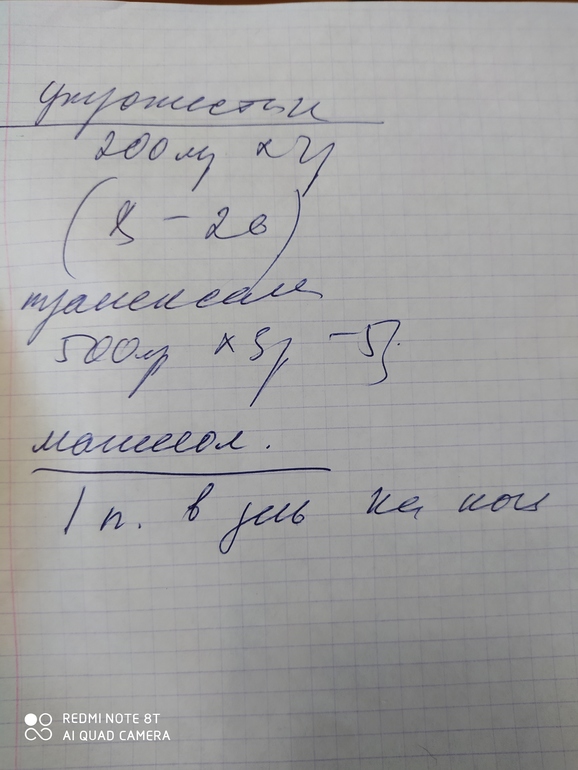 утрожестан
200 мг х 2 р
( 8 - 20 )
транексам
500 мг х 3 р - 5 д.
1 п. в день на ночь
REDMI NOTE 8T
AI QUAD CAMERA